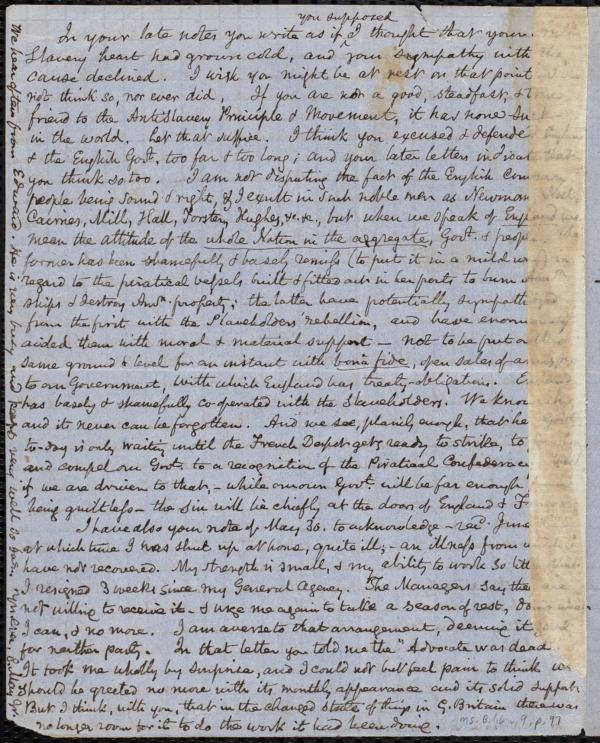 you supposed
In your late notes you write as if ^ I thought that your
Slavery heart had grown cold, and your sympathy with
cause declined. I wish you might be at rest on that point
not think so, nor ever did, If you are not a good, steadfast, &
friend to the AntiSlavery Principle & Movement, it has none
in the world. Let that suffice. I think you excused & defende
& the English Govt. too far & too long; and your later letters indicate that
you think so too. I am not disputing the fact of the English
people being sound & right, & I exult in such noble men as Newman,
Cairnes, Mill, Hall, Forster, Hughes, &c. &c., but when we speak of
mean the attitude of the whole Nation in the aggregate, Govt. &
former has been shamefully & basely remiss (to put it in a mild
regard to the piratical vessels built & fitted out in her ports to burn
ships & destroy Amn. property; the latter have potentially sympath
from the first with the Slaveholders' rebellion, and have
aided them with moral & material support – not to be put on
same ground & level for an instant with bona fide, open sales of
to our Government, with which England was treaty-obligations.
has basely & shamefully co-operated with the Slaveholders. We know
and it never can be forgotten. And we see, plainly enough, that he
to-day is only waiting until the French Despot gets ready to strike, to
and compel our Govt. to a recognition of the Piratical Confederac
if we are driven to that, – while our own Govt. will be far enough
being guiltless – the sin will lie chiefly at the doors of England &
I have also your note of May 30. to acknowledge – recd. June
at which time I was shut up at home, quite ill; – an illness from
have not recovered. My strength is small, & my ability to work so
I resigned 3 weeks since my General Agency. The Managers say they are
not willing to receive it – & urge me again to take a season of rest,
I can, & no more. I am averse to that arrangement, deeming it
for neither party. In that letter you told me the "Advocate was dead
It took me wholly by surprise, and I could not but feel pain to think we
should be greeted no more with its monthly appearance and its solid support.
But I think, with you, that in the changed state of things in G. Britain there was
no longer room for it to do the work it had been doing.
We hear often from Edward. He is very busy and keeps very well
ms. B.1.6 v.9, p. 97